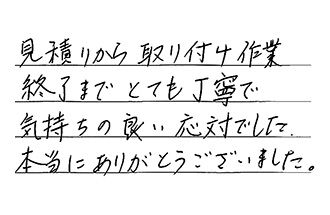 見積りから取り付け作業
終了までとても丁寧で
気持ちの良い応対でした.
本当にありがとうございました。